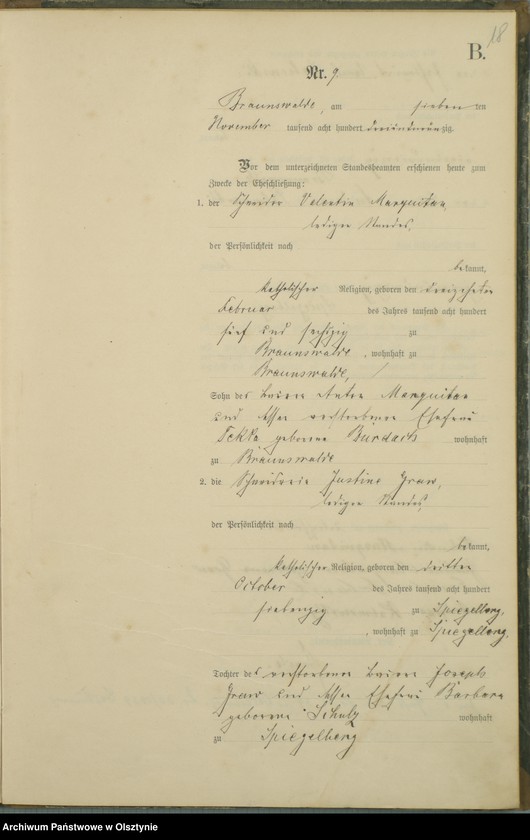 18
B.
Nr. 9.
Braunswalde, am sieben ten
November tausend acht hundert dreiundneunzig.
Vor dem unterzeichneten Standesbeamten erschienen heute zum
Zwecke der Eheschließung:
1. der Schneider Valentin Marquitan,
ledigen Standes,
der Persönlichkeit nach
bekannt,
katholischer Religion, geboren den dreizehnten
Februar des Jahres tausend acht hundert
fünf und sechzig zu
Braunswalde, wohnhaft zu
Braunswalde,
Sohn des Anton Marquitan
und dessen verstorbenen Ehefrau
geborene Burdach wohnhaft
zu Braunswalde
2. die Justine Graw,
ledigen Standes,
der Persönlichkeit nach
bekannt,
katholischer Religion, geboren den dritten
October des Jahres tausend acht hundert
siebenzig zu Spiegelberg,
, wohnhaft zu Spiegelberg,
Tochter des verstorbenen Joseph
Graw und dessen Ehefrau Barbara
geborene Schulz wohnhaft
zu Spiegelberg
Archiwum Państwowe w Olsztynie